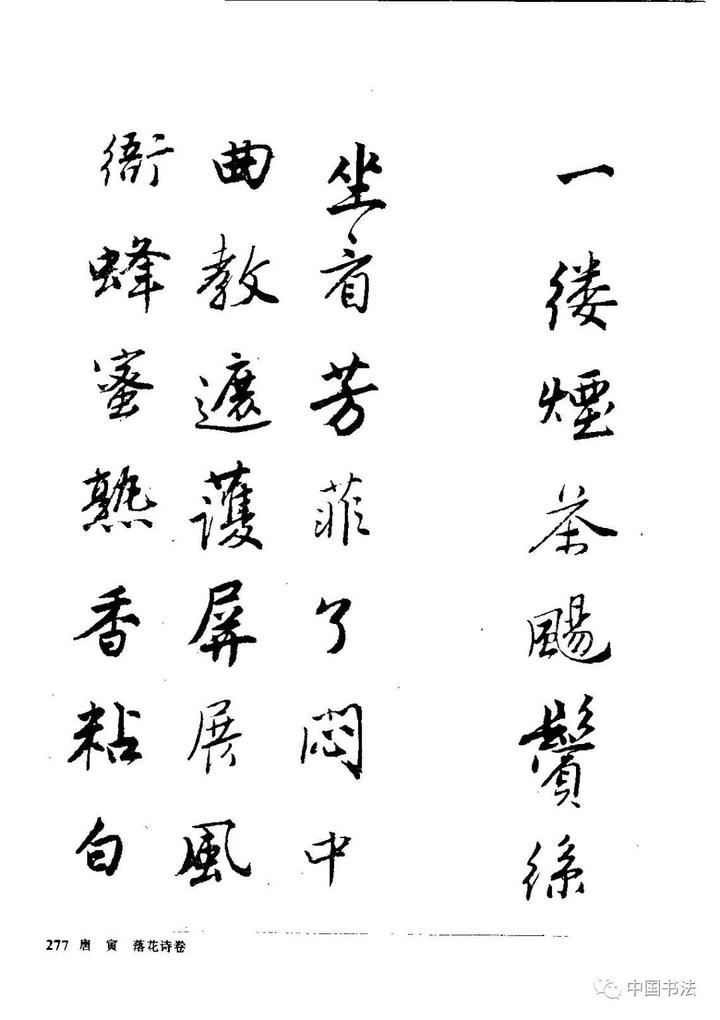 一缕煙茶颺鬢絲
坐看芳菲了悶中
曲教遮護屏展風
衙蜂蜜熟香粘白
277 唐 寅 落花诗卷
中国书法